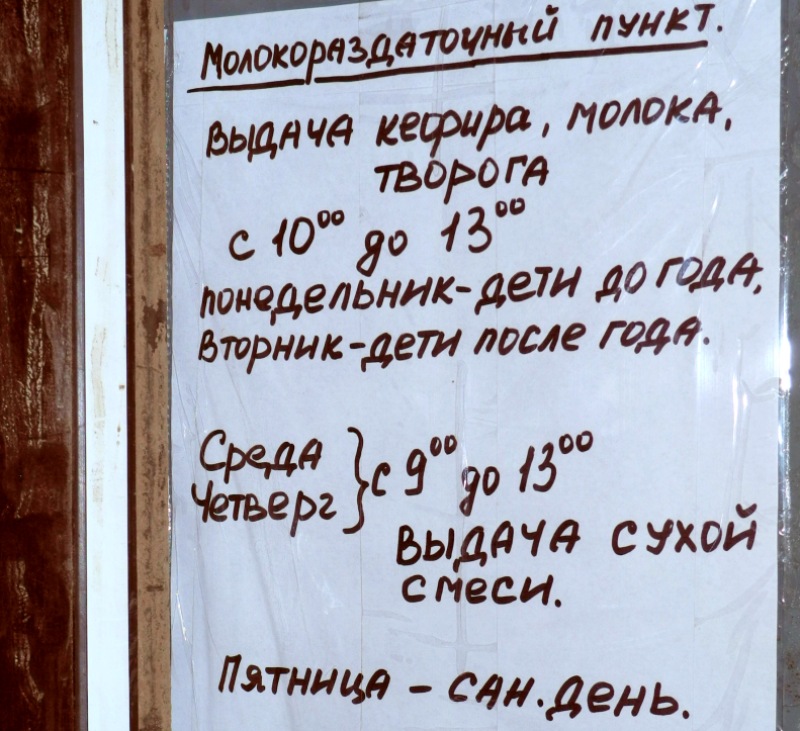 Молокораздаточный пункт.
Выдача кефира, молока,
творога
с 10⁰⁰ до 13⁰⁰
понедельник-дети до года,
Вторник-дети после года.
Среда
Четверг } с 9⁰⁰ до 13⁰⁰
Выдача сухой
смеси.
Пятница - сан. день.